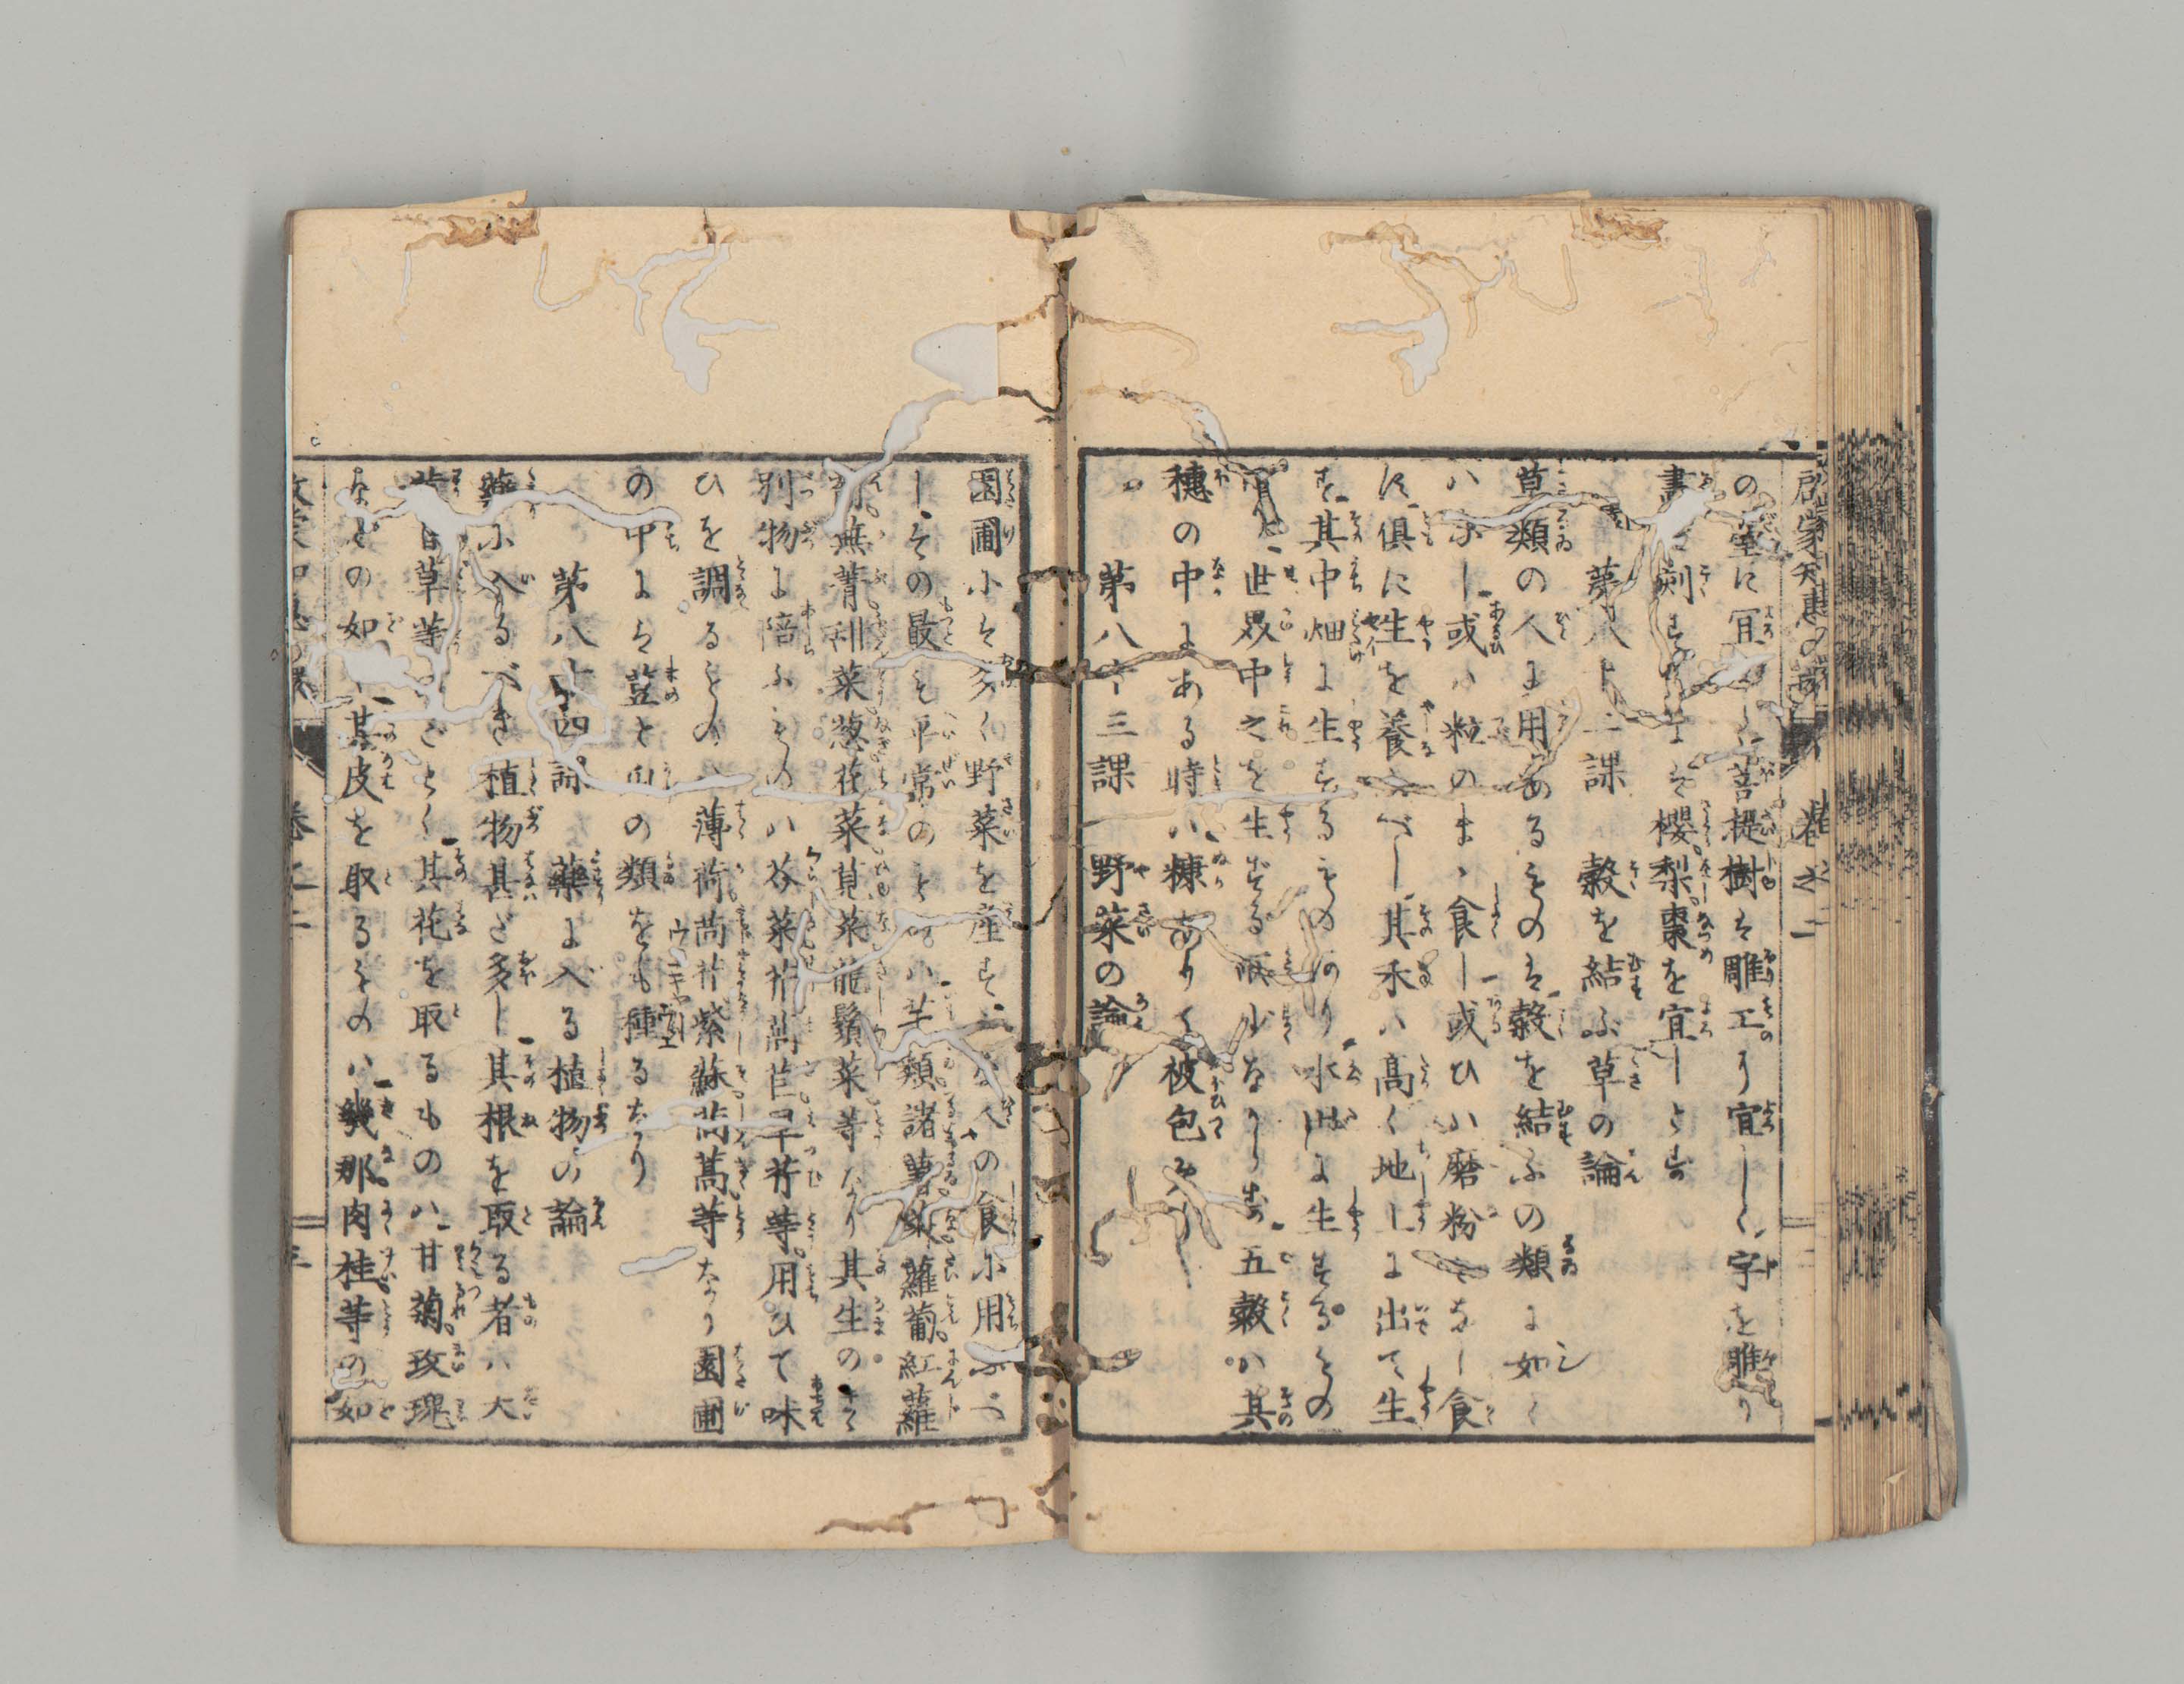 啓蒙知恵の環 巻之二
の室に宜しく菩提樹は雕工に宜しく字を雕り
畫を刻するには櫻梨棗を宜しとす
第八十二課 穀を結ぶ草の論
草類の人に用あるものは穀を結ぶの類に如く
ハなし或ハ粒のまゝ食し或ひハ磨粉となし食
に倶に生を養ふべし其禾ハ高く地上に出て生
ず其中畑に生ずるものあり水田に生ずるもの
有り世界中之を生ずる處少なからず五穀ハ其
穗の中にある時ハ糠ありて被包せり
第八十三課 野菜の論
園圃には多く野菜を産す人の食に用ふ
しその最も平常のものハ芋類諸菜蘿蔔紅蘿
蔔蕪菁利菜葱花菜莧菜龍鬚菜等なり其生のまゝ
別物に陪ふものハ芥菜芹萵苣旱芹等用ひて味
ひを調るものハ薄荷茼芹紫蘇茼蒿等なり園圃
の中には荳と瓜の類をも種るなり
第八十四課 藥に入る植物の論
藥に入るべき植物甚だ多し其根を取る者ハ大
黄甘草等のごとく其花を取るものハ甘菊玫瑰
などの如し其皮を取るものハ幾那肉桂等の如